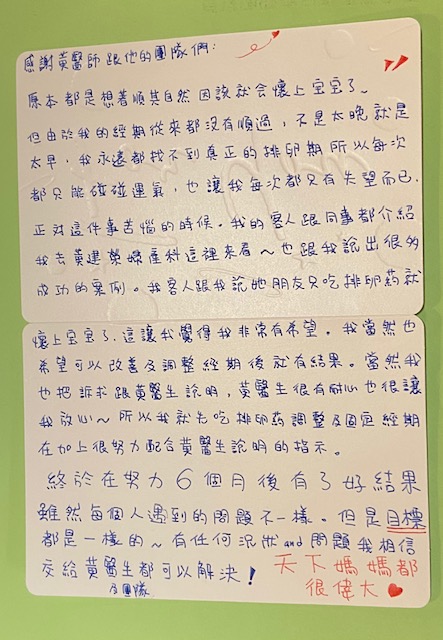 感謝黃醫師跟他的團隊們：
原本都是想著順其自然 因該就會懷上宝宝了~
但由於我的經期從來都沒有順過，不是太晚就是
太早，我永遠都找不到真正的排卵期所以每次
都只能碰碰運氣，也讓我每次都只有失望而已.
正対這件事苦惱的時候。我的客人跟同事都介紹
我去黃建榮婦產科這裡來看~也跟我說出很多
成功的案例。我客人跟我說她朋友只吃排卵葯就
懷上宝宝了.這讓我覺得我非常有希望。我當然也
希望可以改善及調整經期後就有結果。當然我
也把訴求跟黃醫生說明，黃醫生很有耐心也很讓
我放心~ 所以我就先吃排卵葯調整及固定經期
在加上很努力配合黃醫生說明的指示。
終於在努力6個月後有了好結果
雖然每個人遇到的問題不一樣。但是目標
都是一樣的~ 有任何況狀and問題我相信
交給黃醫生及團隊都可以解決！
天下媽媽都
很偉大